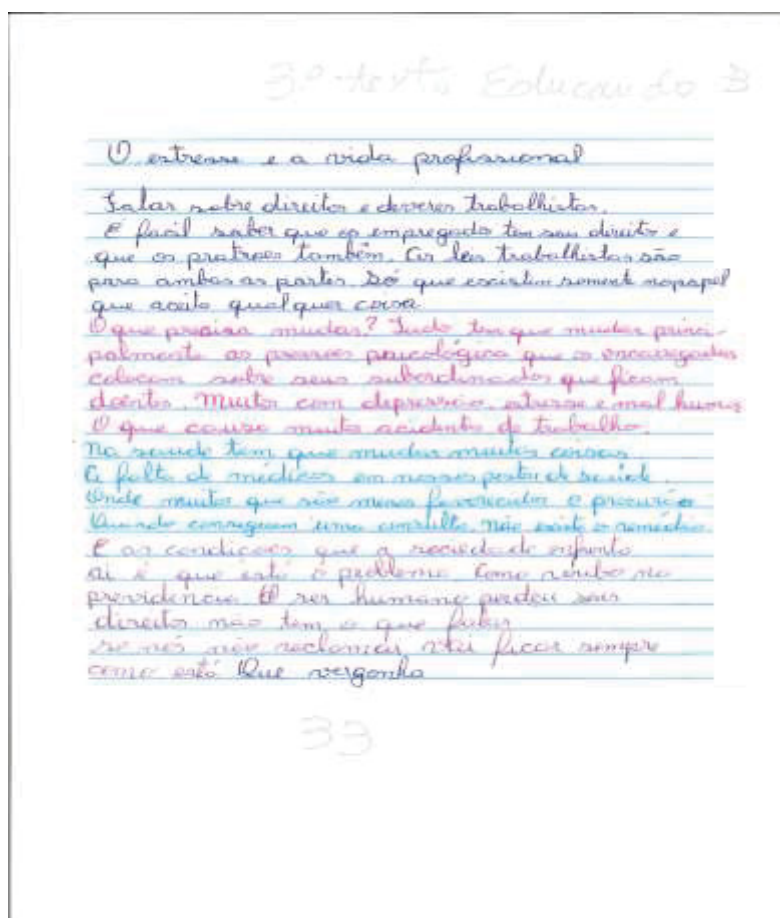 3.º texto Educando 3
O estresse e a vida profissional
Falar sobre direitos e deveres trabalhistas.
E facil saber que os empregados tem seu direito e
que os pratroes também. As leis trabalhistas são
para ambas as partes só que escistem somente no papel
que aceita qualquer coisa.
O que precisa mudar? Tudo tem que mudar princi-
palmente as pressões psicológica que os encarregados
colocam sobre seus subordinados que ficam
doentes. Muitos com depressão, estresse e mal humor
O que causa muito acidente de trabalho.
Na saude tem que mudar muitas coisas
A falta de médicos em nossos postos de saúde.
Onde muitos que são menos favorecidos e
Quando conseguem uma consulta, não existe o remédio.
E as condiçoes que a sociedade enfrenta
ai é que está o problema como no
previdencia O ser humano perdeu seus
direitos não tem o que falar
se nós não reclamar vai ficar sempre
como está Que vergonha
33